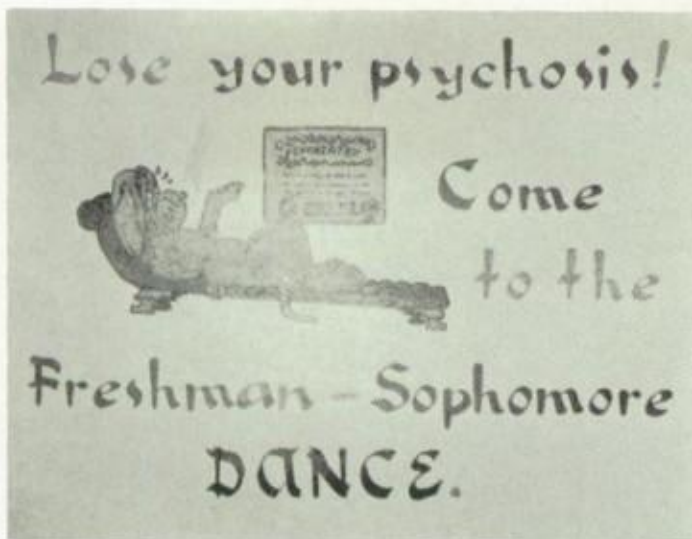 Lose your psychosis!
Come
to the
Freshman - Sophomore
DANCE.